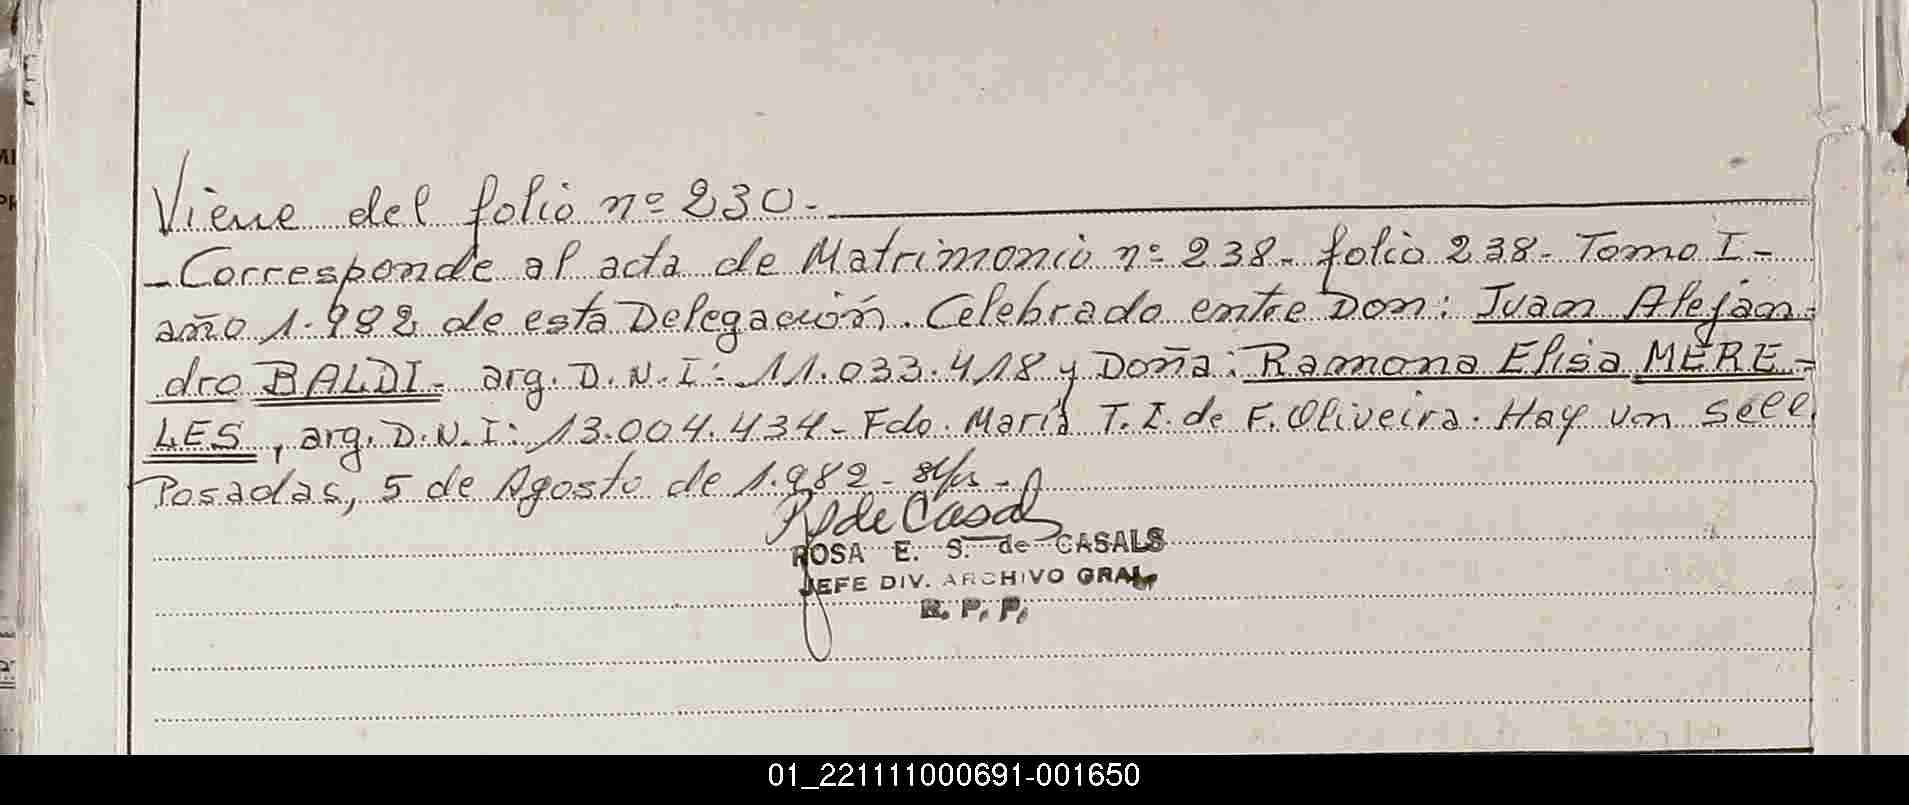 Viene del folio nº 230.-
- Corresponde al acta de Matrimonio nº 238- folio 238- Tomo I-
año 1.982 de esta Delegación. Celebrado entre Don: Juan Alejan-
dro BALDI- arg. D.N.I: 11.033.418 y Doña: Ramona Elisa MERE-
LES, arg. D.N.I: 13.004.434- Fdo. María T. I. de F. Oliveira. Hay un sell
Posadas, 5 de Agosto de 1.982-
de Casals
ROSA E. S. de CASALS
JEFE DIV. ARCHIVO GRAL.
R. P. P.
01_221111000691-001650